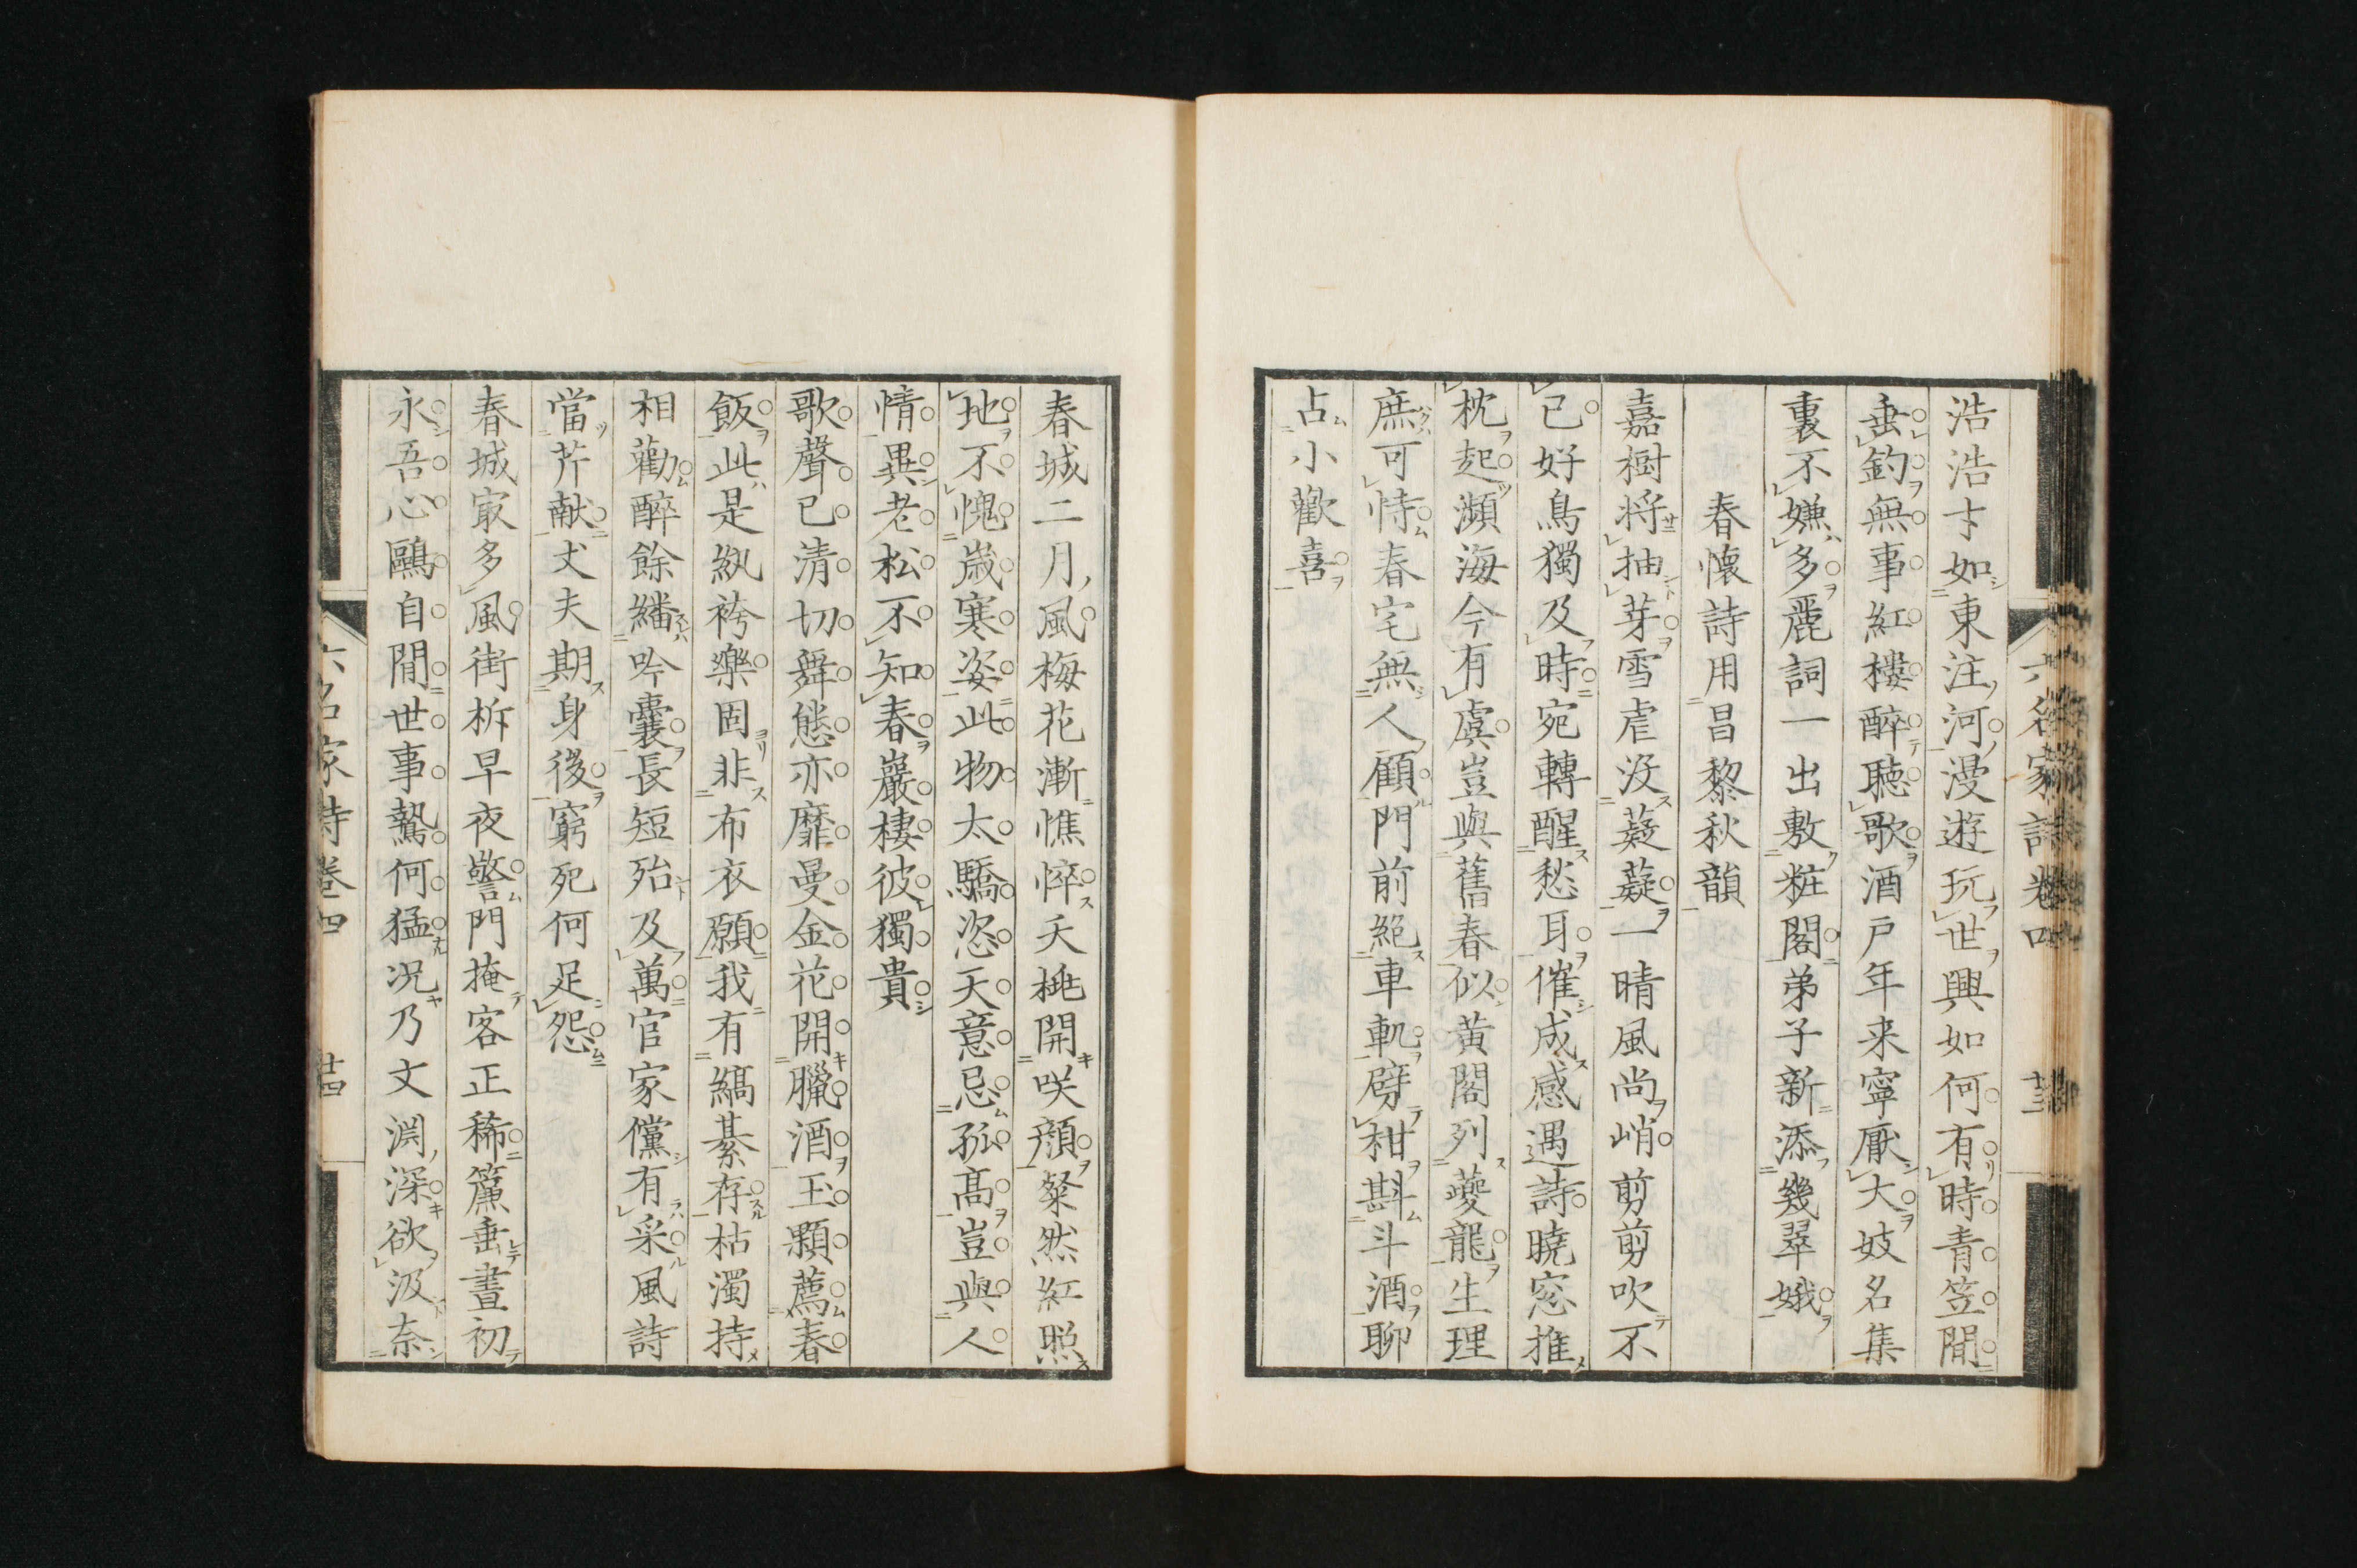 浩浩才如東注河漫遊玩世興如何有時青笠閒
垂釣無事紅樓醉聴歌酒戸年来寧厭大妓名集
裏不嫌多麗詞一出敷粧閣弟子新添幾翠娥
春懐詩用昌黎秋韻
嘉樹将抽芽雪虐没薿薿一晴風尚峭剪剪吹不
已好鳥獨及時宛轉醒愁耳催成感遇詩曉窓推
枕起瀕海今有虞豈與舊春似黄閣列夔龍生理
庶可恃春宅無人顧門前絶車軌劈柑斟斗酒聊
占小歡喜
春城二月風梅花漸憔悴夭桃開咲顔粲然紅照
地不愧歳寒姿此物太驕恣天意忌孤髙豈與人
情異老松不知春巖棲彼獨貴
歌聲已清切舞態亦靡曼金花開臘酒玉顆薦春
飯此是紈袴樂固非布衣願我有縞綦存枯濁持
相勸醉餘繙吟嚢長短殆及萬官家儻有采風詩
當芹献丈夫期身後窮死何足怨
春城㝡多風街柝早夜警門掩客正稀簾垂晝初
永吾心鷗自閒世事鷙何猛况乃文淵深欲汲奈
六名家詩卷四
廿三
六名家詩卷四
廿四